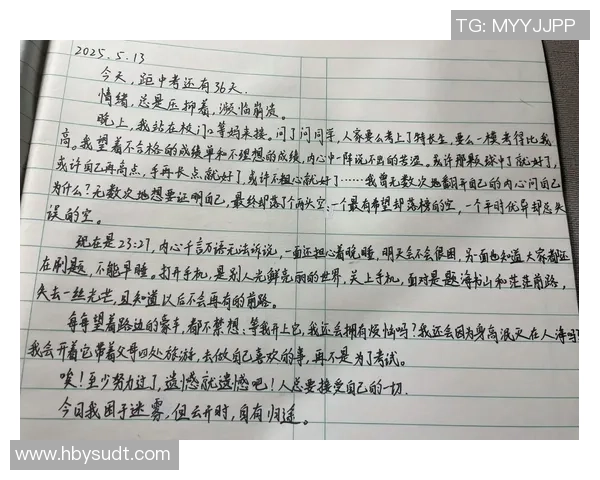 TG: MYYJJPP
2025.5.13
今天，距中考还有36天.
情绪，总是压抑着，濒临崩溃。
晚上，我站在校门口等妈来接。问了问同学，人家要么考上了特长生，要么一模考得比我
高。我望着不合格的成绩单和不理想的成绩，内心中一阵说不出的苦涩。或许那颗球中了就好了，
或许自己再高点，手再长点就好了，或许不粗心就好了……我曾无数次地翻开自己的内心问自己
为什么？无数次地想要证明自己，最终却落了个两头空：一个最有希望却落榜的空，一个平时优异却总失
误的空。
现在是23:27，内心千言万语无法诉说，一面还担心着晚睡，明天会不会很困，另一面也知道大家都还
在刷题，不能早睡，打开手机，是别人光鲜亮丽的世界，关上手机，面对是题海书山和茫茫前路，
失去一丝光芒，且知道以后不会再有的前路。
每每望着路边的豪车，都不禁想：等我开上它，我还会拥有烦恼吗？我还会因为身高泯灭在人海吗？
我会开着它带着父母四处旅游，去做自己喜欢的事，再不是为了考试。
唉！至少努力过了，遗憾就遗憾吧！人总要接受自己的一切.
今日我困于迷雾，但云开时，自有归途。
www.hbysudt.com